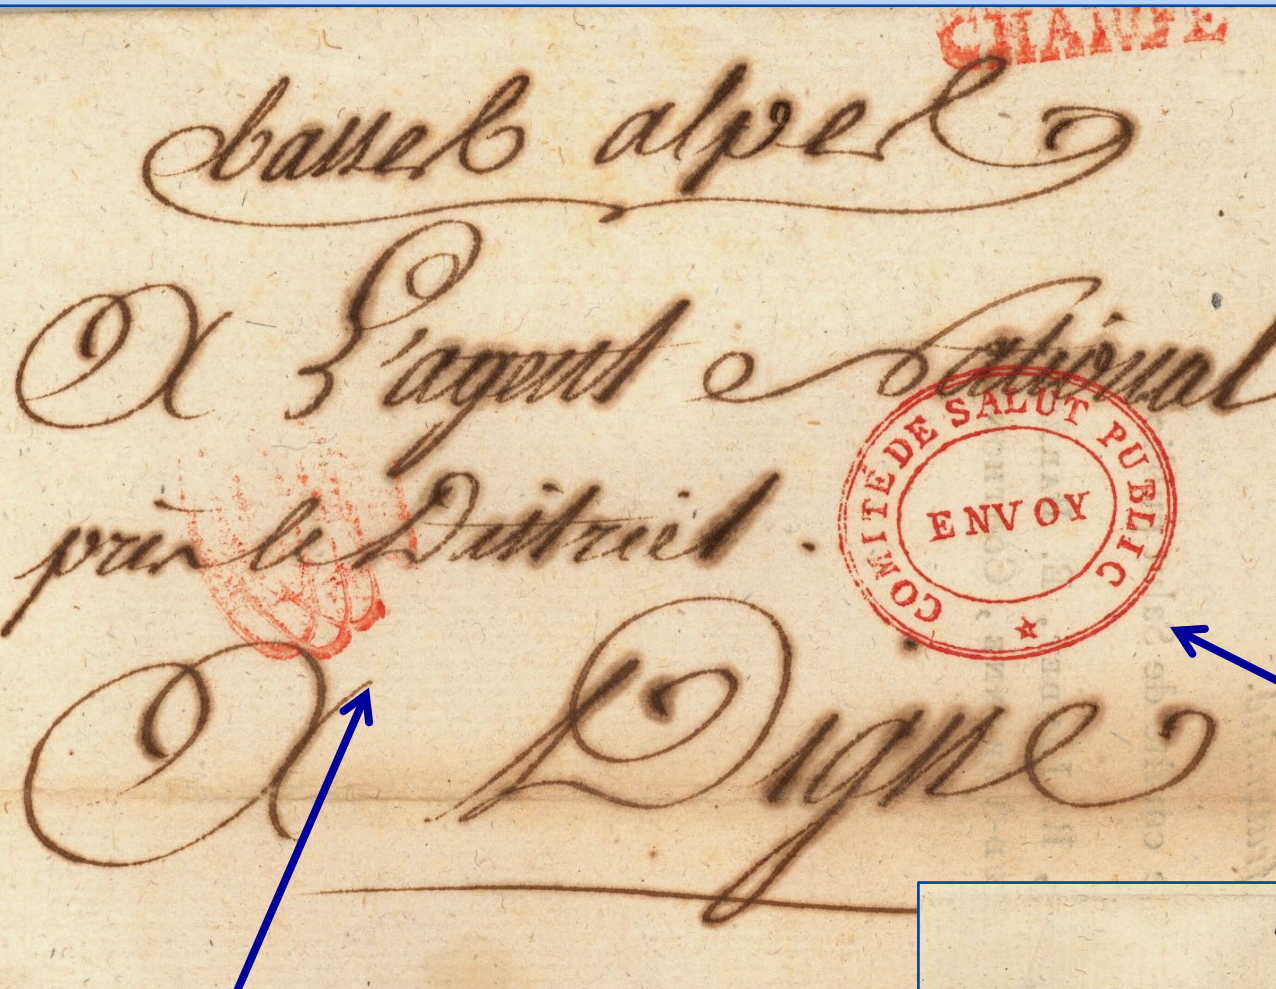 CHARGÉ
basses alpes
A L'agent National
près le District.
COMITÉ DE SALUT PUBLIC
ENVOY
A Digne